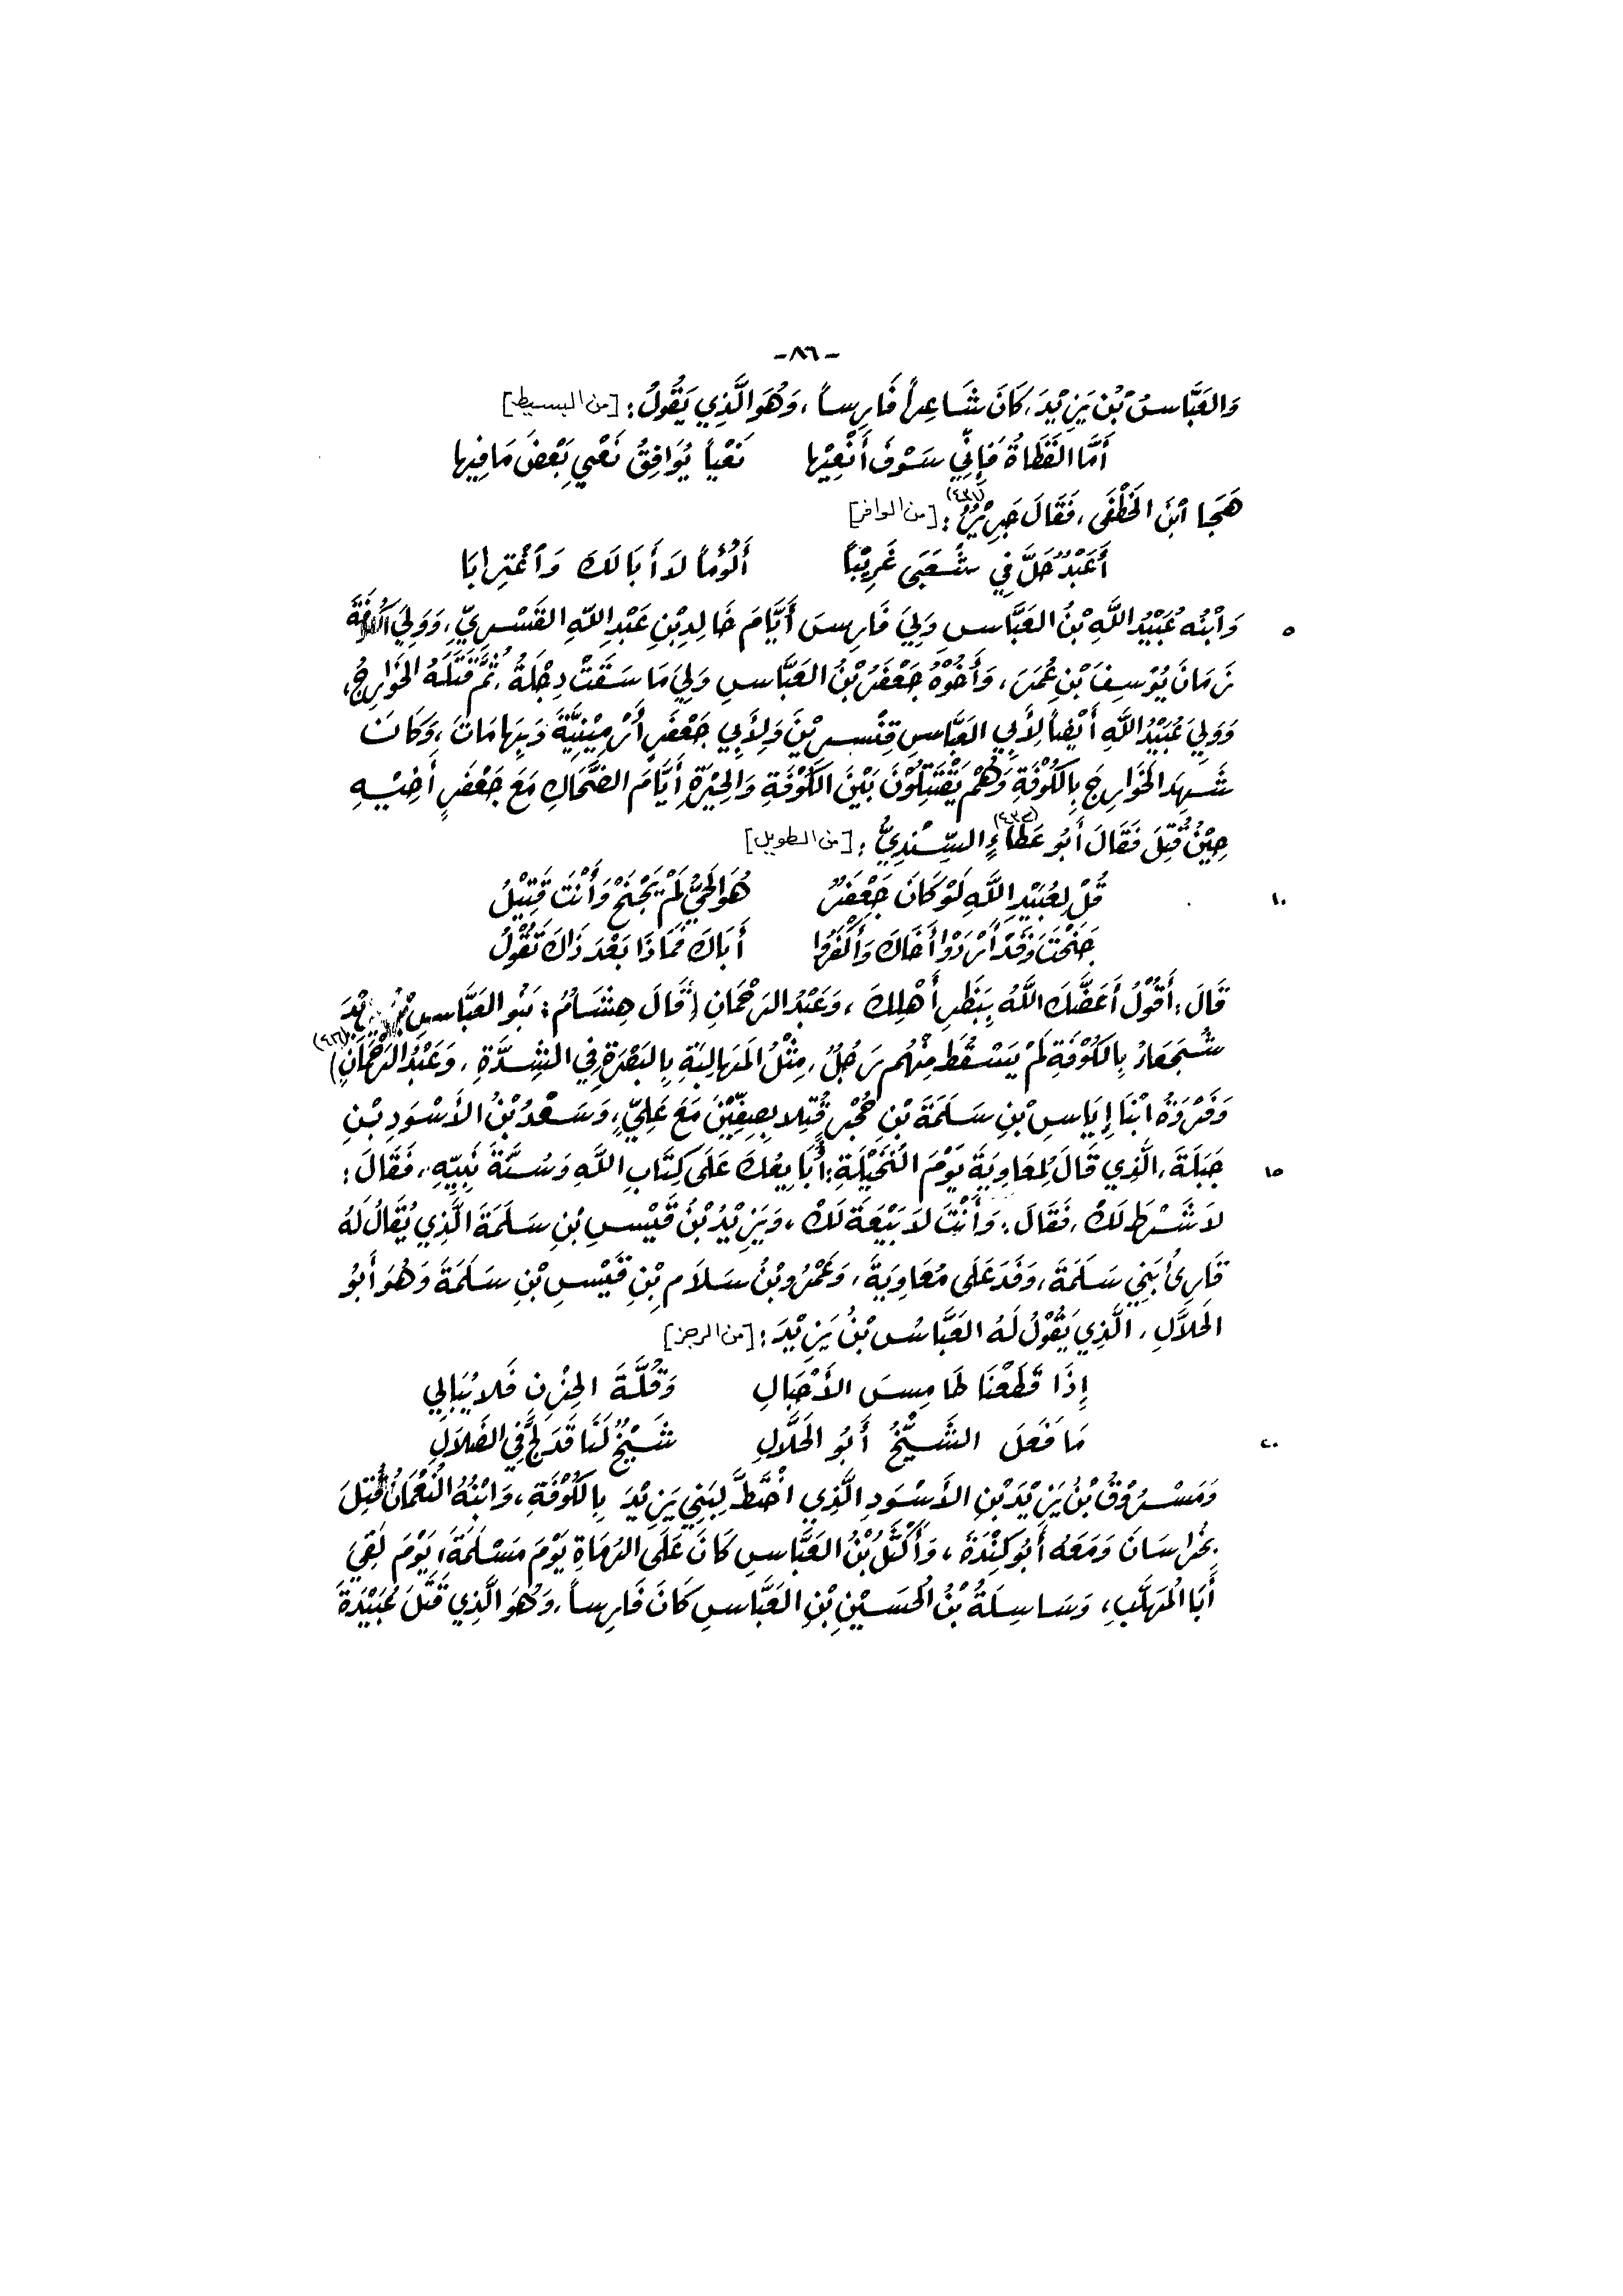 -٨٦-
وَالعَبَّاسُ بْنُ يَزِيْدَ، كَانَ شَاعِراً فَارِساً، وَهُوَ الَّذِي يَقُولُ: [من البسيط]
أَمَّا القَطَاةُ فَإِنِّي سَوْفَ أَنْعِيْها نَعْياً يُوَافِقُ نَعْيِي بَعْضَ مَا فِيها
هَجَا ابْنَ الخَطْفَى، فَقَالَ جَرِيْرٌ (٤٣١): [من الوافر]
أَعَبْدٌ حَلَّ فِي شُعَبَى غَرِيْباً أَلُؤْماً لاَ أَبَا لَكَ وَاغْتِرابَا
٥ وَابْنُه عُبَيْدُ اللَّهِ بْنُ العَبَّاسِ وَلِيَ فَارِسَ أَيَّامَ خَالِدِ بْنِ عَبْدِ اللَّهِ القَسْرِيِّ، وَوَلِيَ الكُوفَةَ
زَمَانَ يُوْسِفَ بْنِ عُمَرَ، وَأَخُوْهُ جَعْفَرُ بْنُ العَبَّاسِ وَلِيَ مَا سَقَتْ دِجْلَةُ، ثُمَّ قَتَلَهُ الخَوَارِجُ،
وَوَلِيَ عُبَيْدُ اللَّهِ أَيْضاً لِأَبِي العَبَّاسِ قِنَّسْرِيْنَ وَلِأَبِي جَعْفَرٍ أَرْمِيْنِيَّةَ وَبِهَا مَاتَ، وَكَانَ
شَهِدَ الخَوَارِجَ بِالكُوْفَةِ وَهُمْ يَقْتَتِلُوْنَ بَيْنَ الكُوْفَةِ وَالحِيْرَةِ أَيَّامَ الضَّحَّاكِ مَعَ جَعْفَرٍ أَخِيْهِ
حِيْنَ قُتِلَ فَقَالَ أَبُو عَطَاءٍ السِّنْدِيُّ (٤٣٢): [من الطويل]
١٠ قُلْ لِعُبَيْدِ اللَّهِ لَوْ كَانَ جَعْفَرٌ هُوَ الحَيُّ لَمْ يَجْنَحْ وَأَنْتَ قَتِيْلُ
جَنَحْتَ وَقَدْ أَرْدَوْا أَخَاكَ وَأَكْفَرُوا أَبَاكَ فَمَاذَا بَعْدَ ذَاكَ تَقُوْلُ
قَالَ: أَقُوْلُ أَعَضَّكَ اللَّهُ بِبَظْرِ أَهْلِكَ، وَعَبْدُ الرَحْمَانِ (قَالَ هِشَامُ: بَنُو العَبَّاسِ بْنِ يَزِيْدَ
شُجَعَاءُ بِالكُوْفَةِ لَمْ يَسْقُطْ مِنْهُم رَجُلٌ، مِثْلُ المَهَالِبَةِ بِالبَصْرَةِ فِي الشِّدَّةِ، وَعَبْدُ الرَحْمَانِ)
وَفَرْوَةُ ابْنَا إِيَاسِ بْنِ سَلَمَةَ بْنِ حُجْرٍ قُتِلا بِصِفِّيْنَ مَعَ عَلِيٍّ، وَسَعْدُ بْنُ الأَسْوَدِ بْنِ
١٥ جَبَلَةَ، الَّذِي قَالَ لِمُعَاوِيَةَ يَوْمَ النُّخَيْلَةِ: أُبَايِعُكَ عَلَى كِتَابِ اللَّهِ وَسُنَّةِ نَبِيِّهِ، فَقَالَ:
لاَ شَرْطَ لَكَ، فَقَالَ: وَأَنْتَ لاَ بَيْعَةَ لَكَ، وَيَزِيْدُ بْنُ قَيْسِ بْنِ سَلَمَةَ الَّذِي يُقَالُ لَهُ
قَارِئُ بَنِي سَلَمَةَ، وَفَدَ عَلَى مُعَاوِيَةَ، وَعَمْرُو بْنُ سَلاَمِ بْنِ قَيْسِ بْنِ سَلَمَةَ وَهُوَ أَبُو
الحَلاَّلِ، الَّذِي يَقُوْلُ لَهُ العَبَّاسُ بْنُ يَزِيْدَ: [من الرجز]
إِذَا قَطَعْنَا طَامِسَ الأَجْبَالِ وَقُلَّةَ الحِزْنِ فَلا يُبَالِي
٢٠ مَا فَعَلَ الشَّيْخُ أَبُو الحَلَّالِ شَيْخٌ لَنَا قَدْ لَجَّ فِي الضَلاَلِ
وَمَسْرُوْقُ بْنُ يَزِيْدَ بْنِ الأَسْوَدِ الَّذِي اخْتَطَّ لِبَنِي يَزِيْدَ بِالكُوْفَةِ، وَابْنُهُ النُعْمَانُ قُتِلَ
بِخُرَاسَانَ وَمَعَه أَبُو كِنْدَةَ، وَأَكْتَلُ بْنُ العَبَّاسِ كَانَ عَلَى الرُمَاةِ يَوْمَ مَسْلَمَةَ، يَوْمَ لَقِيَ
أَبَا المُهَلَّبِ، وَسَاسِلَةُ بْنُ الحُسَيْنِ بْنِ العَبَّاسِ كَانَ فَارِساً، وَهُوَ الَّذِي قَتَلَ عُبَيْدَةَ